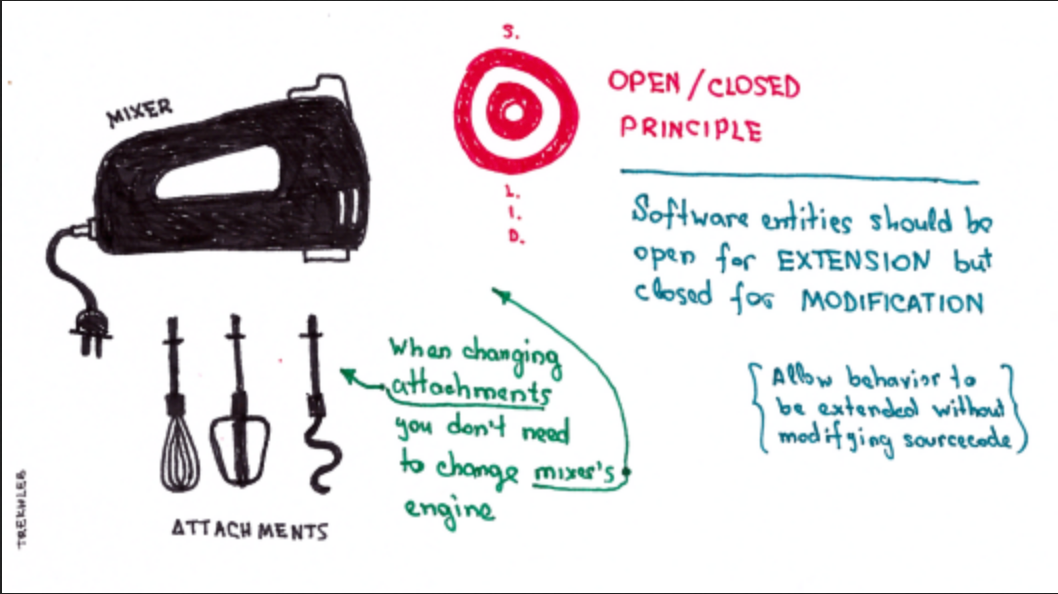 MIXER
S.
L.
I.
D.
OPEN/CLOSED
PRINCIPLE
Software entities should be
open for EXTENSION but
closed for MODIFICATION
When changing
attachments
you don't need
to change mixer's
engine
{Allow behavior to
be extended without
modifying sourcecode}
ATTACHMENTS
TREKHLEB